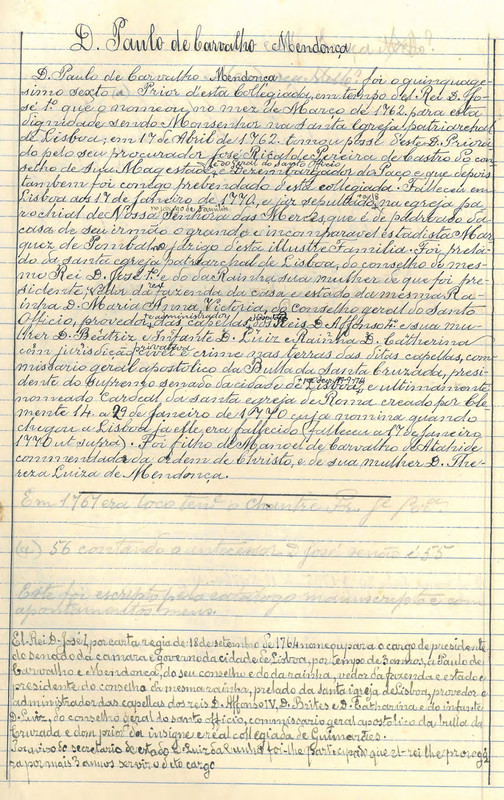 D. Paulo de Carvalho Mendonça
D. Paulo de Carvalho Mendonça foi o quinquage-
simo sexto (a) Prior d'esta Collegiada, em tempo d'El Rei D. Jo-
sé 1º que o nomeou no mez de Março de 1762 para esta
dignidade sendo Monsenhor na Santa Egreja patriarchal
de Lisboa; em 17 de Abril de 1762 tomou posse d'este D. Priora-
do pelo seu procurador José Ricalde Pereira de Castro do con-
selho de Sua Magestade e Dezembargador do Paço e que depois
tambem foi conego prebendado d'esta collegiada. Falleceu em
Lisboa aos 17 de Janeiro de 1770, e jaz sepultado na egreja pa-
rochial de Nossa Senhora das Mercês que é de padroado da
casa de seu irmão o grande e incomparavel estadista Mar-
quez de Pombal e jazigo d'esta illustre Familia. Foi prela-
do da santa egreja patriarchal de Lisboa, do conselho do mes-
mo Rei D. José 1º e do da Rainha sua mulher de que foi pre-
sidente, vedor da fazenda da casa e estado da mesma Ra-
inha D. Maria Anna Victoria, do Conselho geral do Santo
Officio, provedor das capellas dos Reis D. Affonso 4º e sua mu-
lher D. Beatriz e Infante D. Luiz e Rainha D. Catherina
com jurisdicção civel e crime nas terras das ditas capellas, com-
missario geral apostolico da Bulla da Santa Cruzada, presi-
dente do Supremo senado da cidade de Lisboa, e ultimamente
nomeado Cardeal da santa egreja de Roma creado por Cle-
mente 14 a 29 de Janeiro de 1770 cuja nomina quando
chegou a Lisboa já elle era fallecido (falleceu a 17 de Janeiro
1770 ut supra). Foi filho de Manoel de Carvalho d'Atahide
commendador da Ordem de Christo, e de sua mulher D. The-
reza Luiza de Mendonça.
Em 1767 era loco tente o Chantre
(a) 56 contando o antecessor D José senão é 55
Este foi escripto pelo catalogo manuscripto e com
apontamentos meus.
El-Rei D. José I, por carta regia de 18 de setembro de 1764 nomeou para o cargo de presidente
do senado da camara e governo da cidade de Lisboa, por tempo de 3 annos, a Paulo de
Carvalho e Mendonça, do seu conselho e do da rainha, vedor da fazenda e estado e
presidente do conselho da mesma rainha, prelado da santa igreja de Lisboa, provedor e
administrador das capellas dos reis D. Affonso IV, D. Brites e D. Catharina e do infante
D. Luiz, do conselho geral do santo officio, commissario geral apostolico da bulla da
Cruzada e dom prior da insigne e real collegiada de Guimarães.
Por aviso do secretario de estado D. Luiz da Cunha foi-lhe participado que el-rei lhe proroga-
ra por mais 3 annos servir o dito cargo